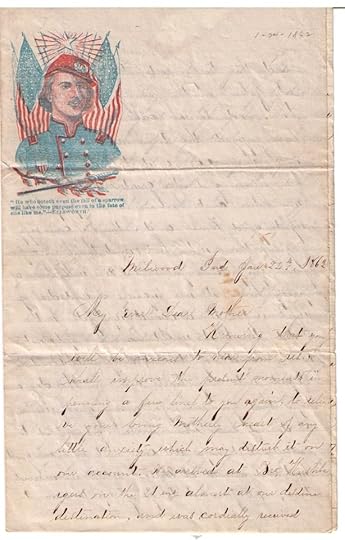 1-24-1862
"He who noteth even the fall of a sparrow,
will have some purpose even in the fate of
one like me."—ELLSWORTH.
Milwood Ind Jan 24th, 1862
My Ever Dear Mother
Knowing that you
will be anxious to hear from us I
shall improve the present moments in
penning a few lines to you again to relie
ve your loving Motherly heart of any
little anxiety which may disturb it on
our account. We arrived at
on the 21 inst almost at our destine
destination, and was cordially received